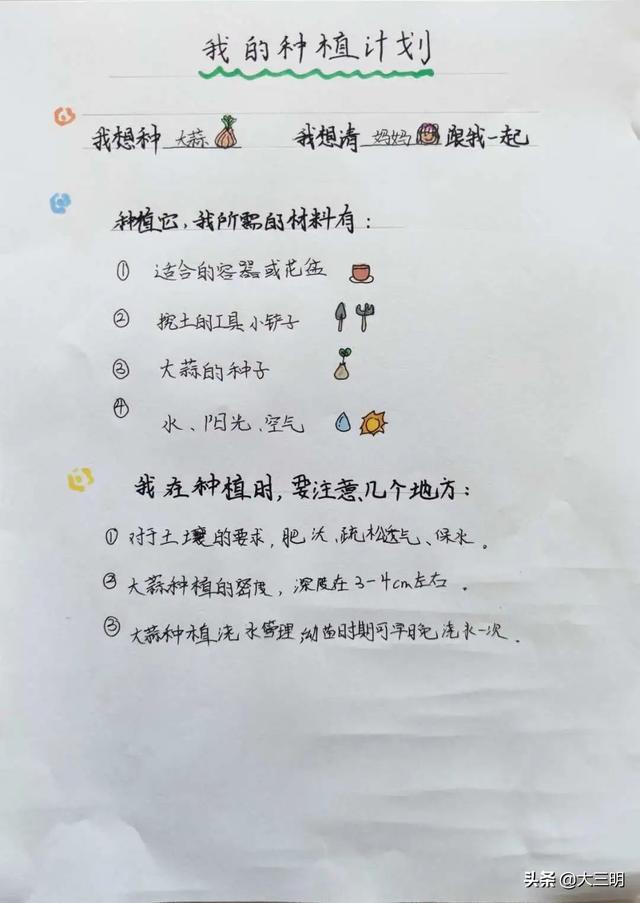 我的种植计划
我想种 大蒜 我想请 妈妈 跟我一起
种植它,我所需的材料有:
① 适合的容器或花盆
② 挖土的工具 小铲子
③ 大蒜的种子
④ 水、阳光、空气
我在种植时,要注意几个地方:
① 对于土壤的要求,肥沃、疏松透气、保水。
② 大蒜种植的密度,深度在3-4cm左右。
③ 大蒜种植浇水管理 幼苗时期可早晚浇水一次。
头条 @大三明